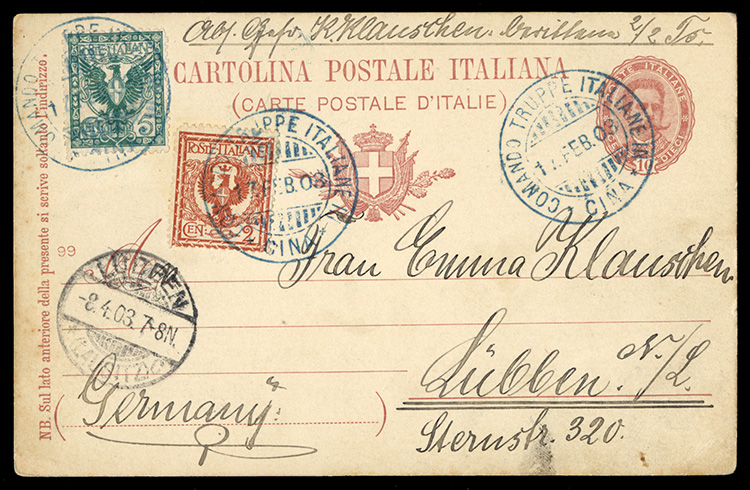 Abs. Gefr. K. Klauschen. 2/2
CARTOLINA POSTALE ITALIANA
(CARTE POSTALE D'ITALIE)
NB. Sul lato anteriore della presente si scrive soltanto l'indirizzo.
99
POSTE ITALIANE
5
POSTE ITALIANE
CEN. 2
POSTE ITALIANE
10 DIECI
COMANDO TRUPPE ITALIANE IN CINA
17.FEB.03
COMANDO TRUPPE ITALIANE IN CINA
17.FEB.03
Frau Emma Klauschen
LÜBBEN
-8.4.03.7-8N.
(LAUSITZ)
Lübben. N./L.
Germany.
Sternstr. 320.